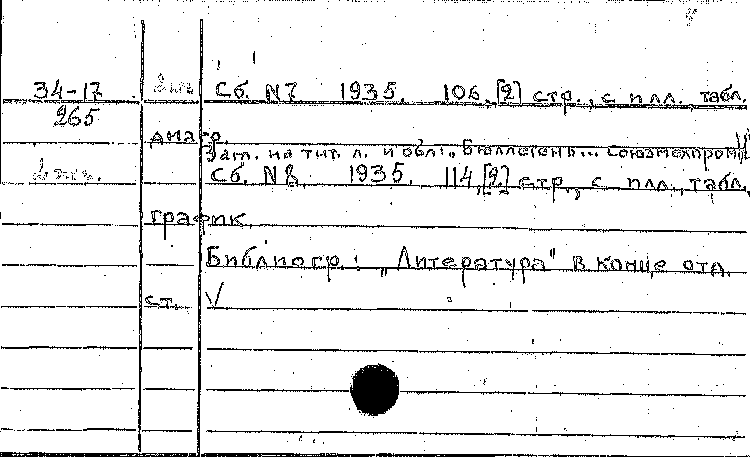 34-17 2 экз. Сб. N7 1935. 106,[2] стр., с илл. табл.
265
диагр.
Загл. на тит. л. и обл.: „Бюллетень... Союзмехпром"
2 экз. Сб. N8. 1935. 114,[2] стр., с илл., табл.,
график.
Библиогр.: „Литература" в конце отд.
ст. V